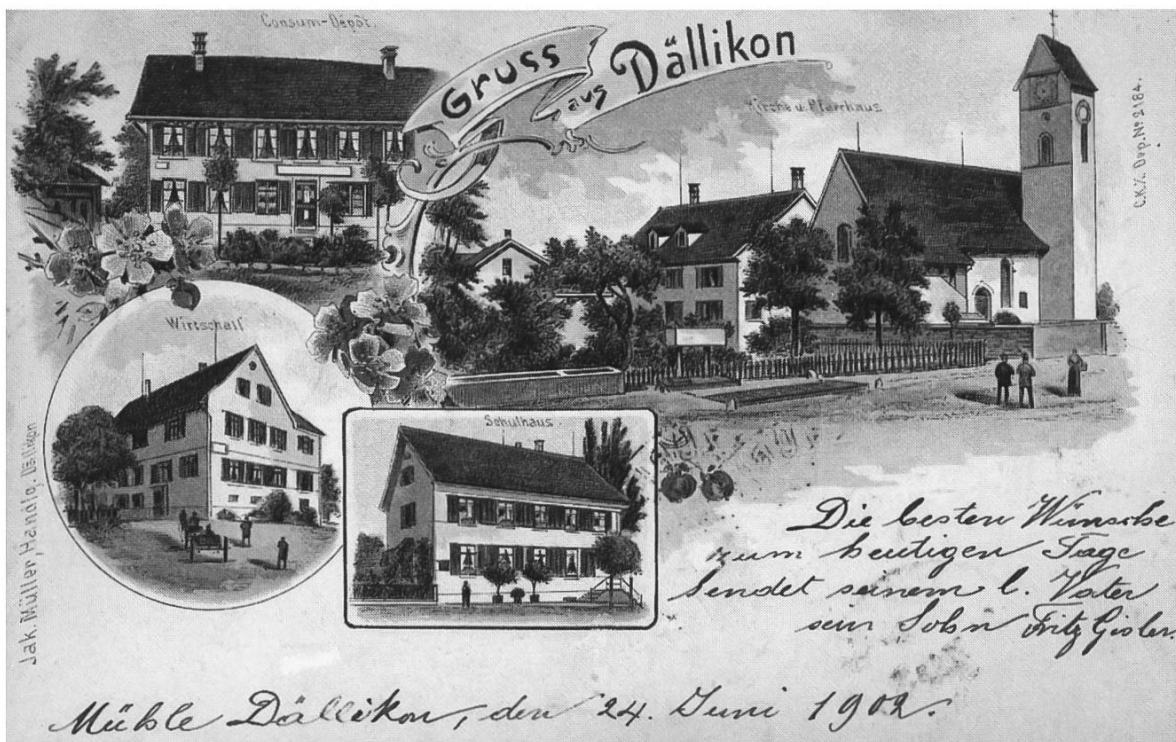 Consum-Dépôt.
Gruss
aus Dällikon
Kirche u. Pfarrhaus
C.K.Z. Dep. Nº 2184.
Wirtschaft
Schulhaus
Jak. Müller, Handlg. Dällikon
Die besten Wünsche
zum heutigen Tage
sendet seinem l. Vater
sein Sohn Fritz Gisler.
Mühle Dällikon, den 24. Juni 1902.